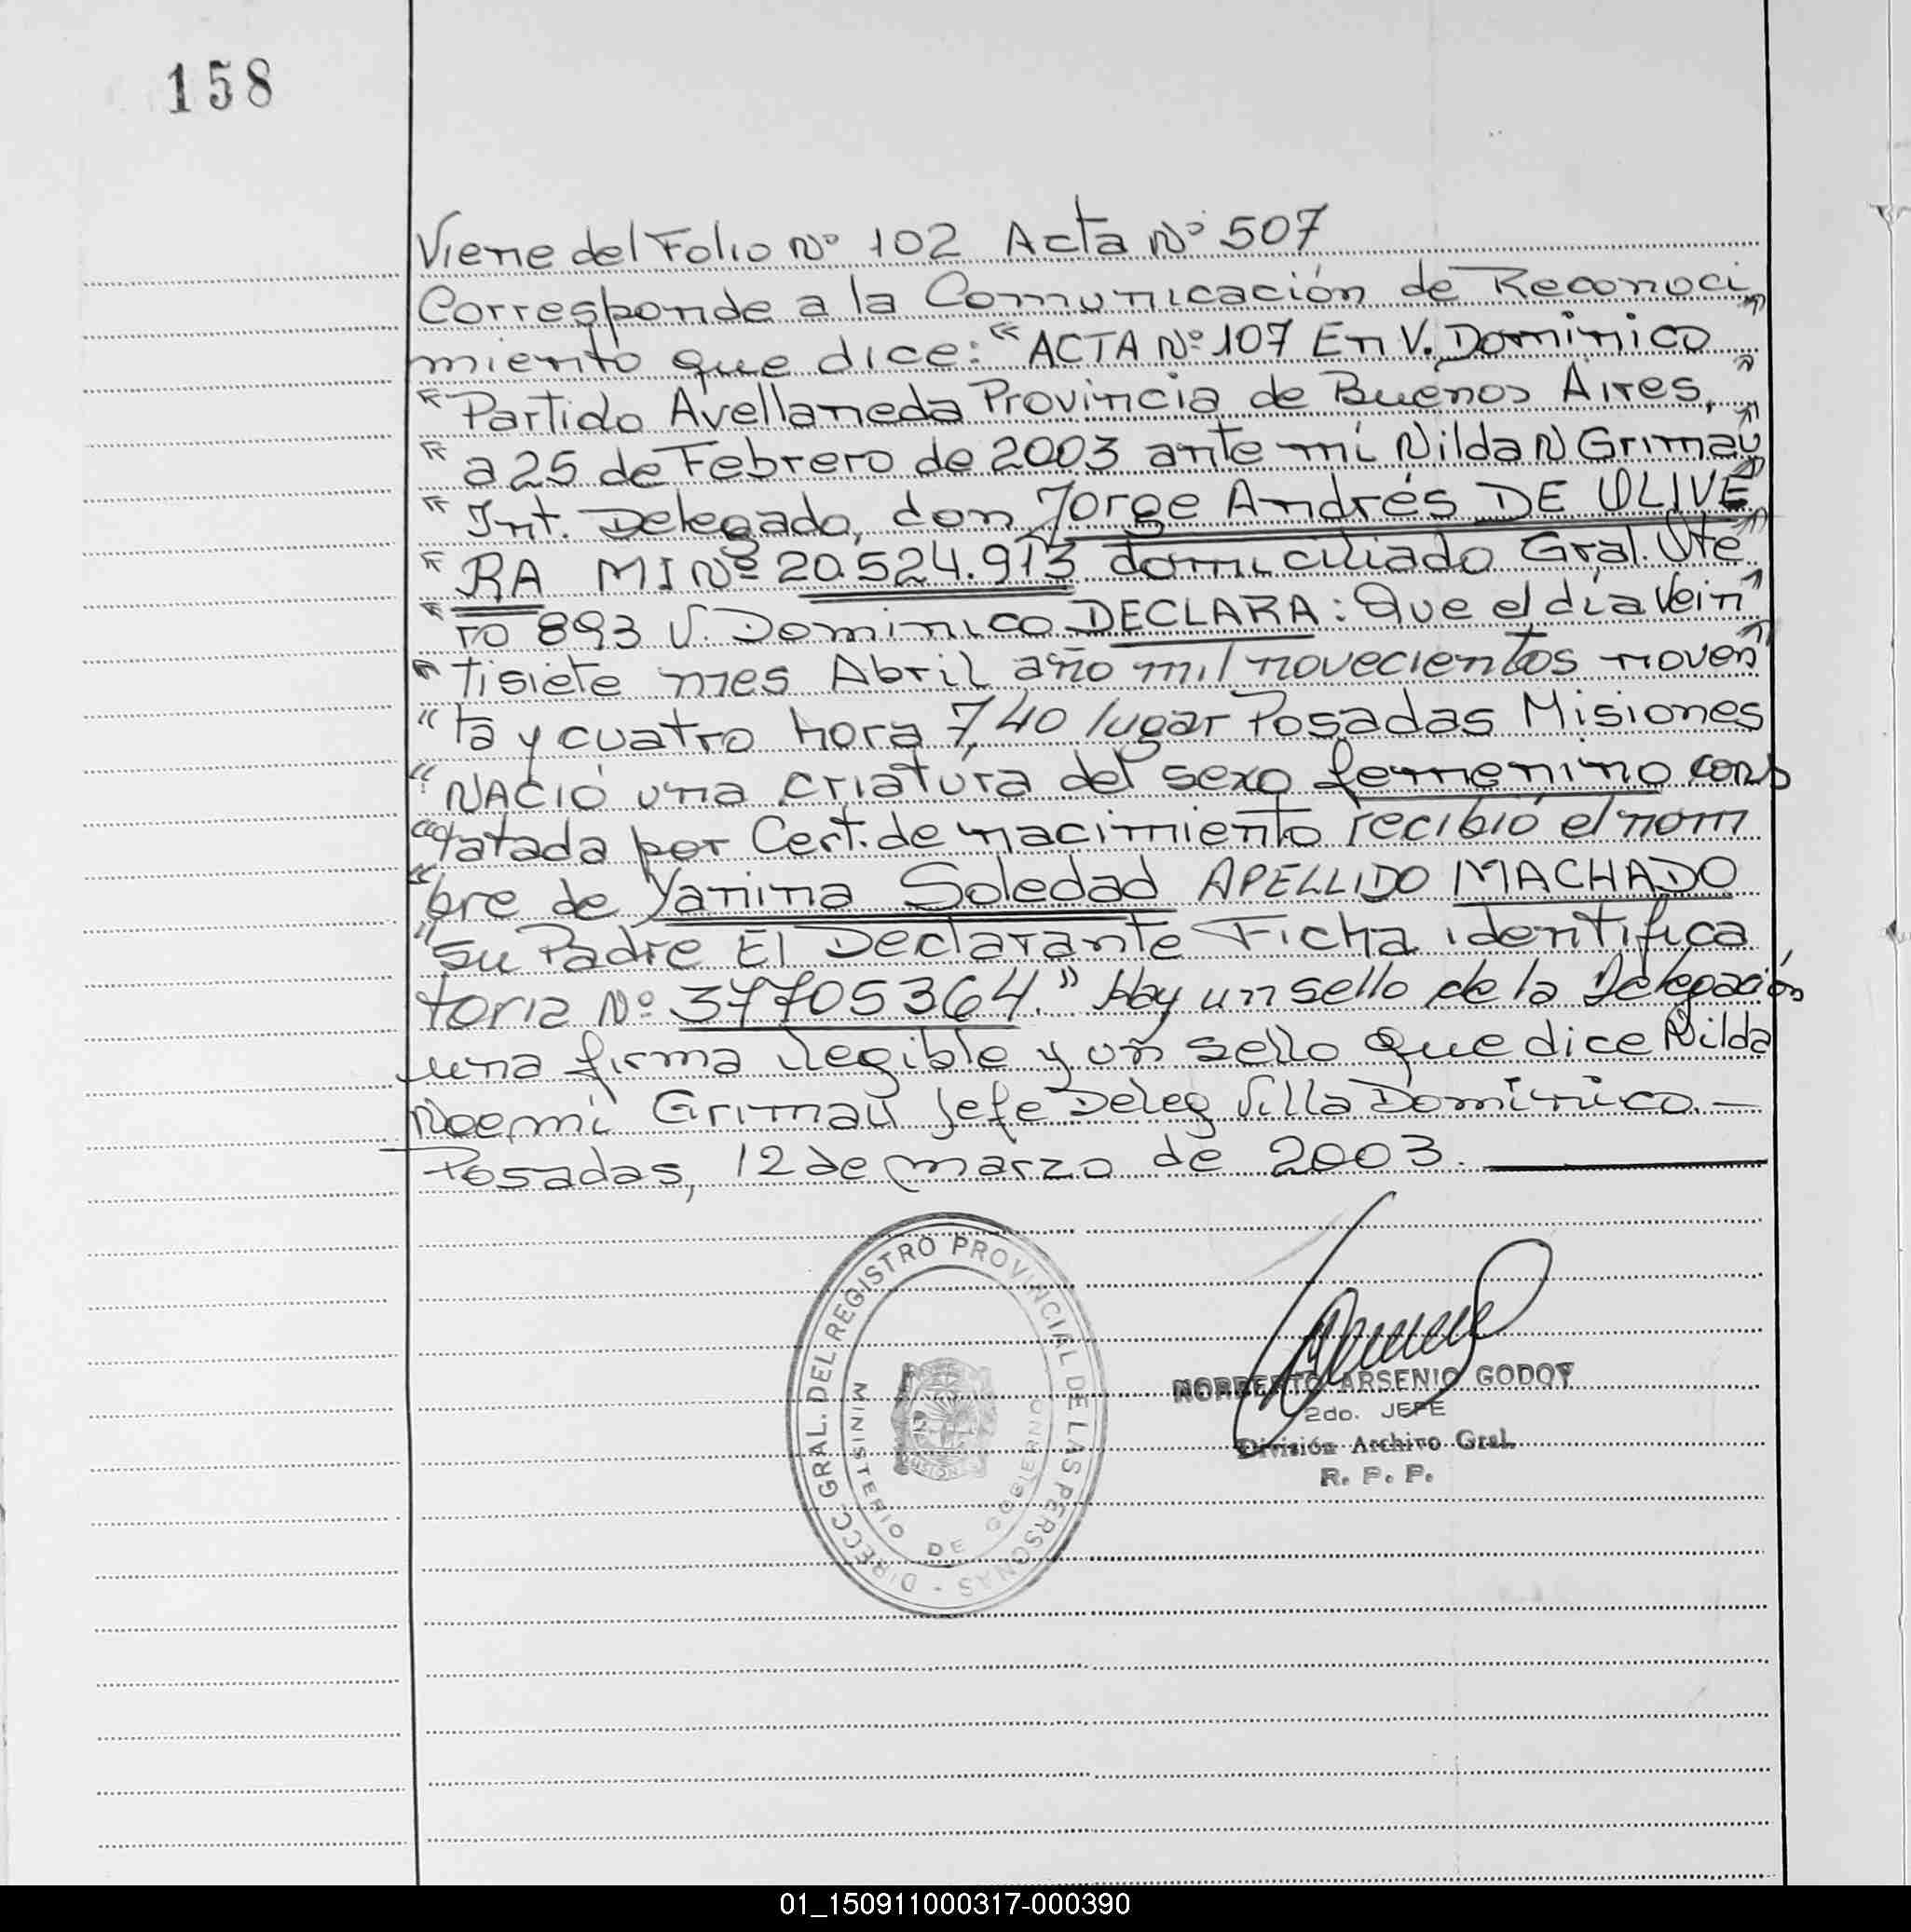 158
Viene del Folio Nº 102 Acta Nº 507
Corresponde a la Comunicación de Reconoci"
miento que dice: "ACTA Nº 107 En V. Dominico
"Partido Avellaneda Provincia de Buenos Aires, "
"a 25 de Febrero de 2003 ante mí Nilda N Grimau"
"Int. Delegado, don Jorge Andrés DE OLIVE"
"RA MI Nº 20.524.913 domiciliado Gral. Ute"
"ro 893 V. Dominico DECLARA: Que el día Vein"
"tisiete mes Abril año mil novecientos noven"
"ta y cuatro hora 7,40 lugar Posadas Misiones
"NACIÓ una criatura del sexo femenino cons
"tatada por Cert. de nacimiento recibió el nom
"bre de Yanina Soledad APELLIDO MACHADO
"su Padre El Declarante Ficha identifica
toria Nº 37705364." Hay un sello de la Delegación
una firma ilegible y un sello que dice Nilda
Noemí Grimau Jefe Deleg Villa Dominico.—
Posadas, 12 de marzo de 2003.
DIRECC. GRAL. DEL REGISTRO PROVINCIAL DE LAS PERSONAS -
MINISTERIO DE GOBIERNO
MISIONES
NORBERTO ARSENIO GODOY
2do. JEFE
División Archivo Gral.
R. P. P.
01_150911000317-000390